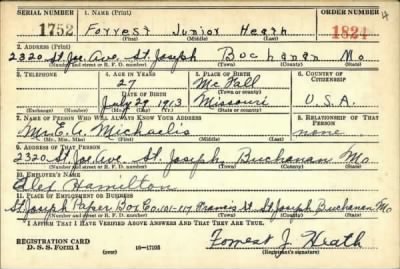 SERIAL NUMBER 1. NAME (Print) ORDER NUMBER
1752 Forrest Junior Heath 1824
(First) (Middle) (Last)
2. ADDRESS (Print)
2320 St. Joe Ave. St. Joseph Buchanan Mo
(Number and street or R. F. D. number) (Town) (County) (State)
3. TELEPHONE 4. AGE IN YEARS 5. PLACE OF BIRTH 6. COUNTRY OF CITIZENSHIP
27 McFall
DATE OF BIRTH (Town or county)
July 29 1913 Missouri U.S.A.
(Exchange) (Number) (Mo.) (Day) (Yr.) (State or country)
7. NAME OF PERSON WHO WILL ALWAYS KNOW YOUR ADDRESS 8. RELATIONSHIP OF THAT PERSON
Mr. E. A. Michaelis none
9. ADDRESS OF THAT PERSON
2320 St. Joe Ave. St. Joseph, Buchanan Mo
(Number and street or R. F. D. number) (Town) (County) (State)
10. EMPLOYER'S NAME
Alex Hamilton
11. PLACE OF EMPLOYMENT OR BUSINESS
St Joseph Paper Box Co. 101-117 Francis St. St Joseph Buchanan Mo
(Number and street or R. F. D. number) (Town) (County) (State)
I AFFIRM THAT I HAVE VERIFIED ABOVE ANSWERS AND THAT THEY ARE TRUE.
REGISTRATION CARD
D. S. S. Form 1 (over) 16-17105 Forrest J. Heath